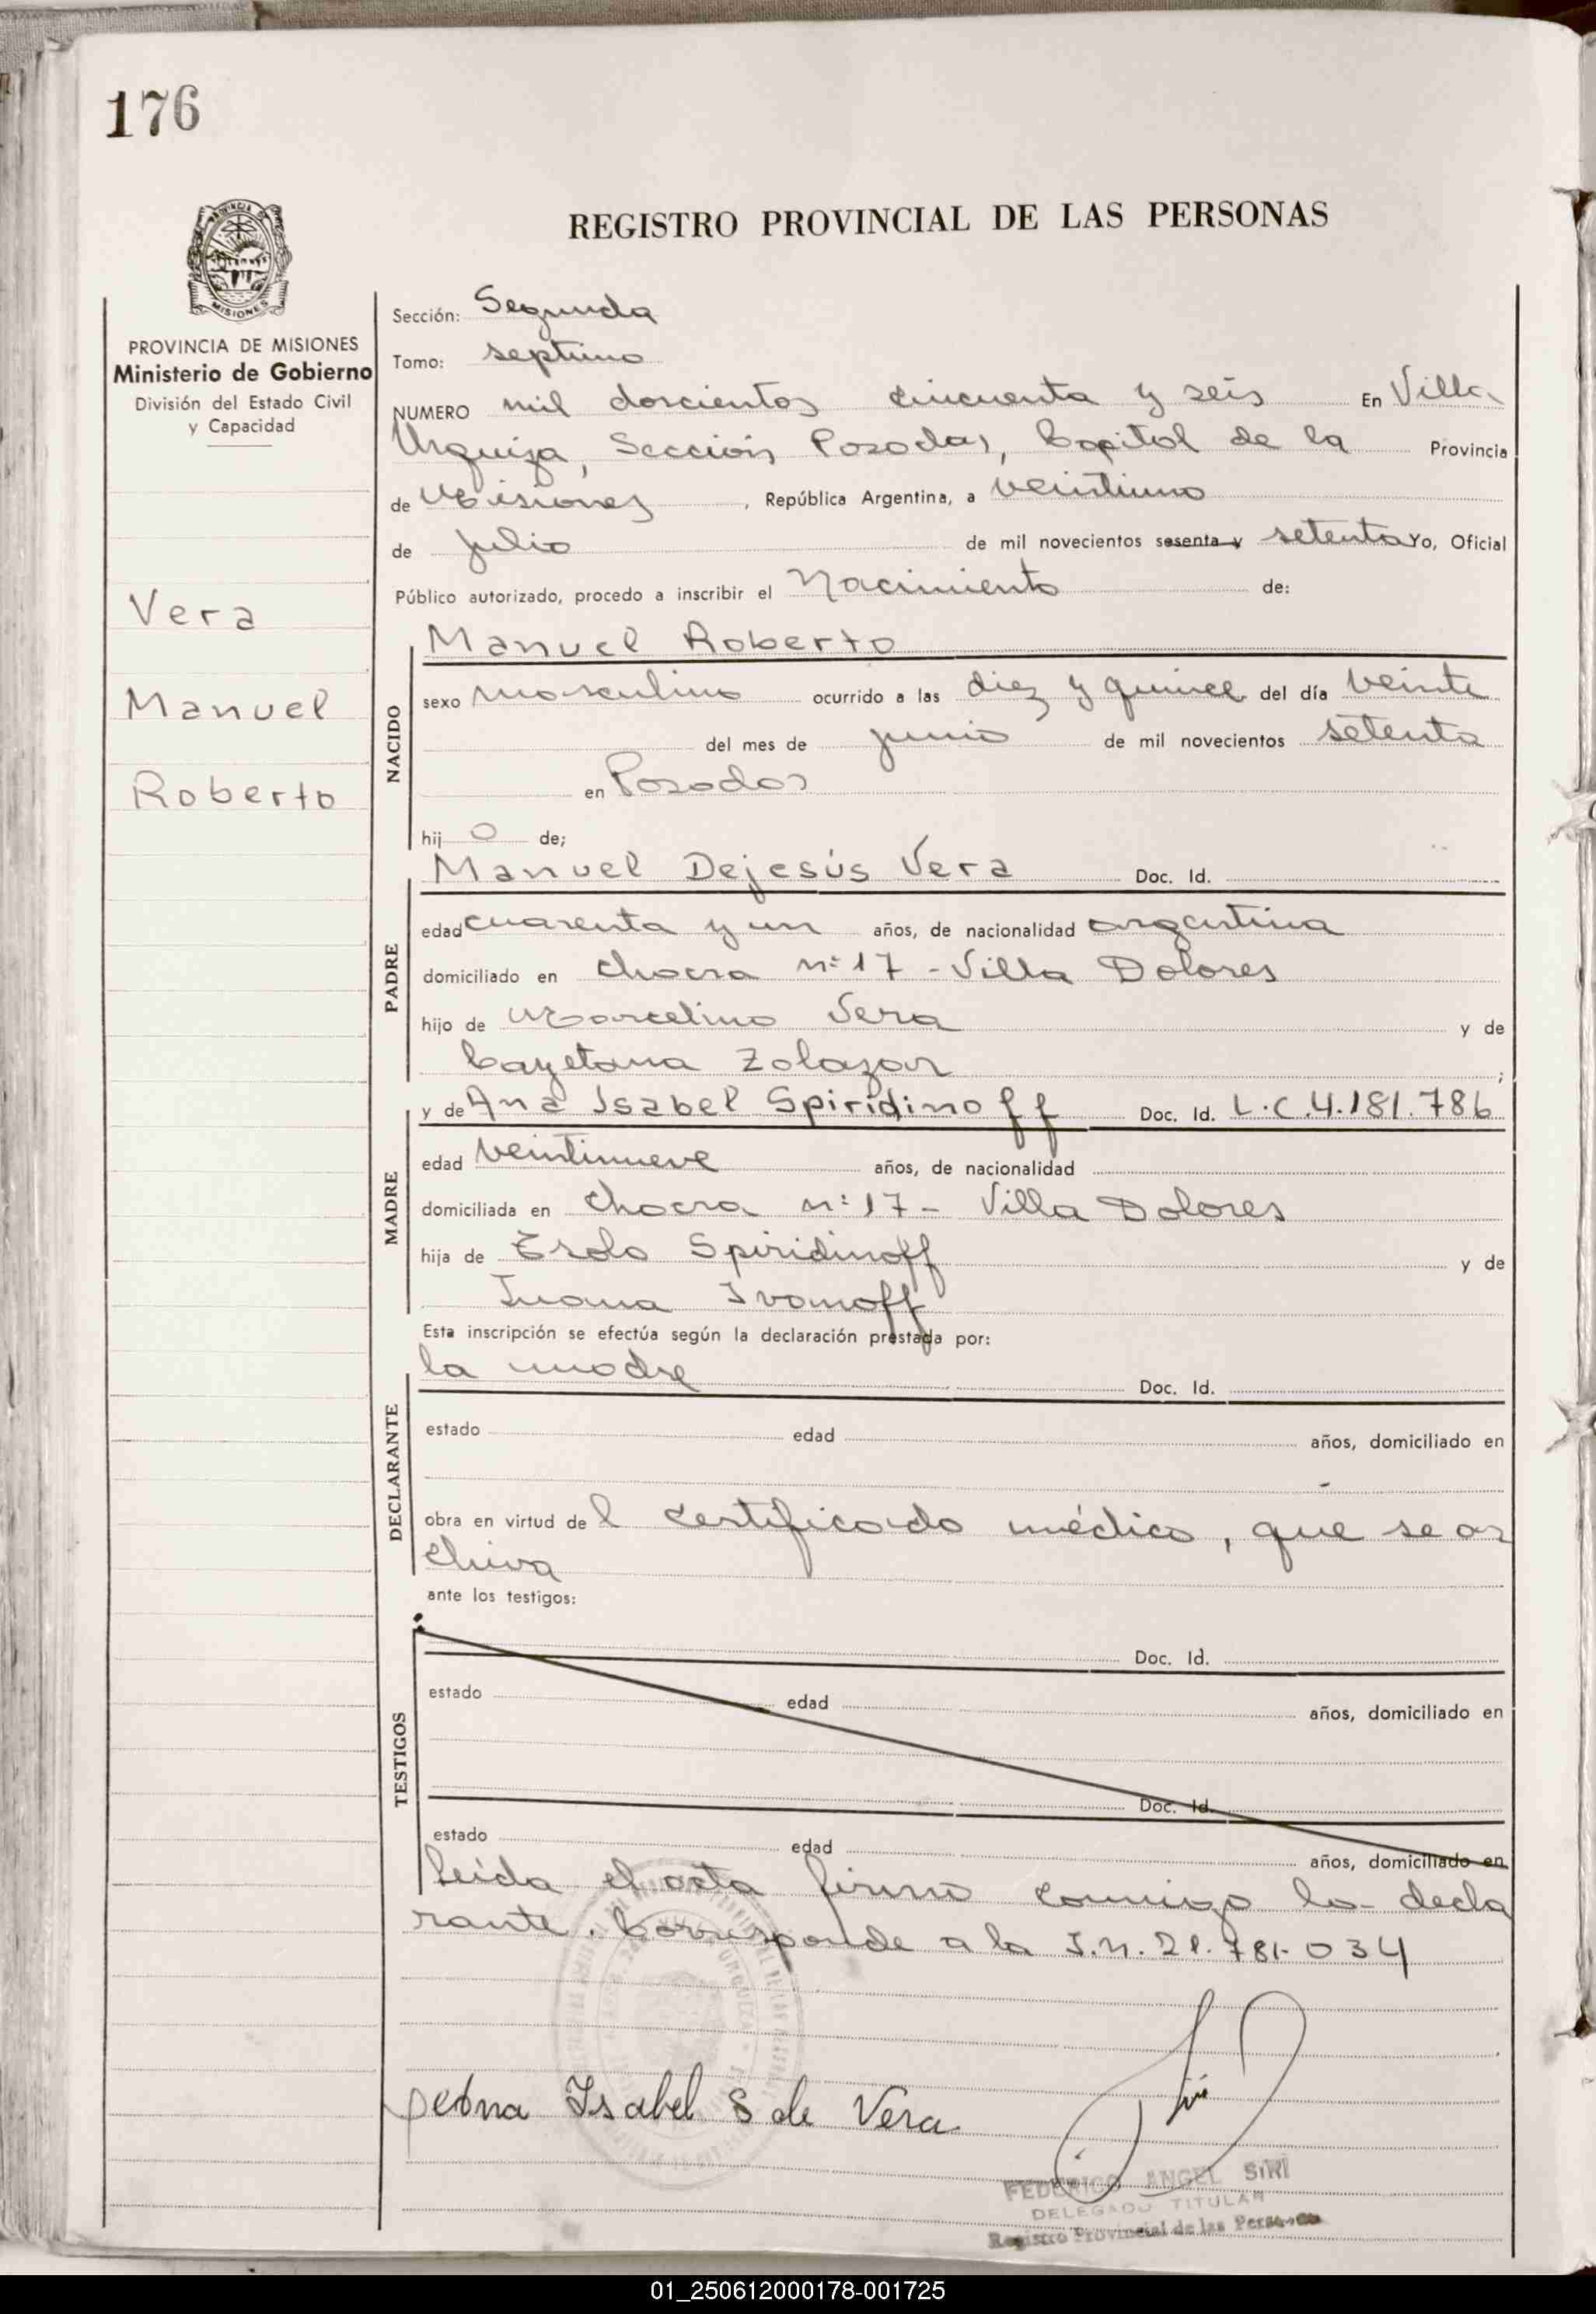 176
REGISTRO PROVINCIAL DE LAS PERSONAS
PROVINCIA DE
MISIONES
PROVINCIA DE MISIONES
Ministerio de Gobierno
División del Estado Civil
y Capacidad
Vera
Manuel
Roberto
Sección: Segunda
Tomo: septimo
NUMERO mil doscientos cincuenta y seis En Villa
Urquiza, Sección Posadas, Capital de la Provincia
de Misiones, República Argentina, a veintiuno
de julio de mil novecientos sesenta y setenta Yo, Oficial
Público autorizado, procedo a inscribir el Nacimiento de:
NACIDO
Manuel Roberto
sexo masculino ocurrido a las diez y quince del día veinte
del mes de junio de mil novecientos setenta
en Posadas
hij o de;
PADRE
Manuel Dejesús Vera Doc. Id.
edad cuarenta y un años, de nacionalidad argentina
domiciliado en chacra nº 17 - Villa Dolores
hijo de Marcelino Vera y de
Cayetana Zolazar;
MADRE
y de Ana Isabel Spiridinoff Doc. Id. L.C.4.181.786
edad veintinueve años, de nacionalidad
domiciliada en chacra nº 17 - Villa Dolores
hija de Spiridinoff y de
Juana Ivanoff
Esta inscripción se efectúa según la declaración prestada por:
DECLARANTE
la madre Doc. Id.
estado edad años, domiciliado en
obra en virtud del certificado médico, que se ar
chiva
ante los testigos:
TESTIGOS
Doc. Id.
estado edad años, domiciliado en
Doc. Id.
estado edad años, domiciliado en
Leída el acta firma conmigo la decla
rante. Corresponde a la I.N. 21.781.034
Isabel S de Vera
FEDERICO ANGEL SIRI
DELEGADO TITULAR
Registro Provincial de las Personas
01_250612000178-001725